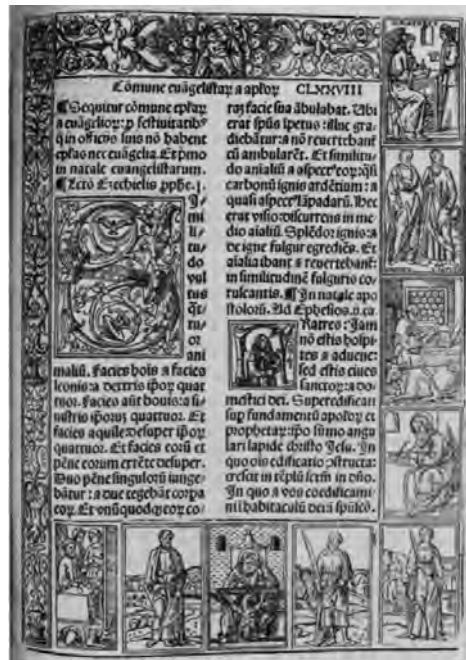 Cōmune euāgelistaꝝ ⁊ aploꝝ CLXXVIII
¶ Sequitur cōmune eplaꝝ
⁊ euāgelioꝝ: ꝓ festiuitatibꝰ
q̄ in officijs suis nō habent
eplas nec euāgelia. Et pmo
in natale euangelistarum.
¶ Lectō Ezechielis ꝓphe. j.
SI-
mi
li-
tu-
do
vul
tus
q̄t
tu-
or
ani
maliū. Facies hoīs ⁊ facies
leonis: a dextris ipōꝝ quat
tuor. Facies aūt bouis: a si-
nistris ipōrum quattuor. Et
facies aquile desuper ipōꝝ
quattuor. Et facies eoꝝ et
pēne eorum extēte desuper.
Due pēne singuloꝝ iunge-
bātur: ⁊ due tegebāt corpa
eoꝝ. Et vnūquodqꝫ eoꝝ co-
raꝫ facie sua ābulabat. Vbi
erat spūs īpetus: illuc gra-
diebātur: ⁊ nō reuertebant̄
cū ambularēt. Et similitu-
do aīaliū ⁊ aspectꝰ eoꝝ: q̄si
carbonū ignis ardētium: ⁊
quasi aspectꝰ lāpadarū. Hec
erat visio discurrens in me-
dio aīaliū. Splēdor ignis: ⁊
de igne fulgur egrediēs. Et
aīalia ibant ⁊ reuertebant̄:
in similitudinē fulguris co-
ruscantis. ¶ In natale apo
stolorū. Ad Ephesios. ij. ca.
FRatres: Jam
nō estis hospi-
tes ⁊ aduene:
sed estis ciues
sanctoꝝ: ⁊ do-
mestici dei. Superedificati
sup fundamentū aploꝝ et
prophetaꝝ: ipō sūmo angu
lari lapide christo Jesu. In
quo oīs edificatio ꝯstructa:
crescit in tēplū sctm̄ in dn̄o.
In quo ⁊ vos coedificami-
ni ī habitaculū dei ī spūscō.